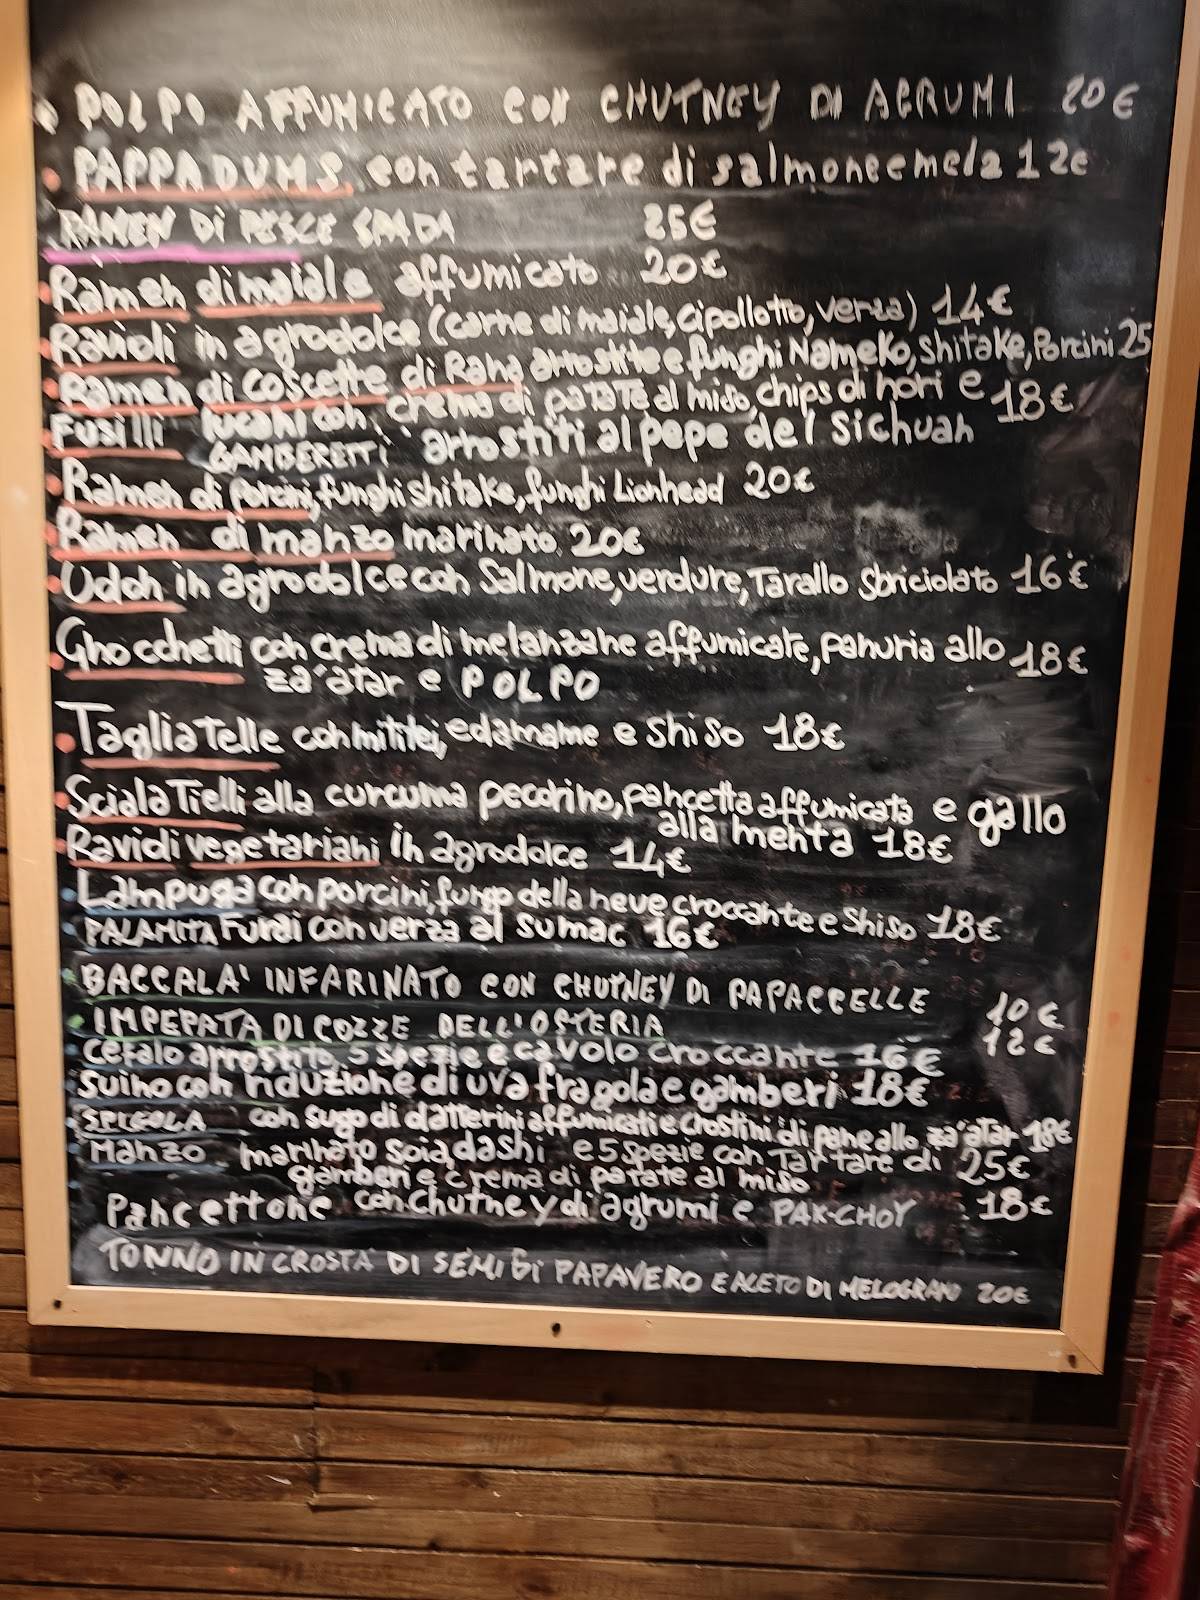 POLPO AFFUMICATO CON CHUTNEY DI AGRUMI 20€
PAPPADUMS con tartare di salmone e mela 12€
RAMEN DI PESCE SPADA 25€
Ramen di maiale affumicato 20€
Ravioli in agrodolce (carne di maiale, cipollotto, verza) 14€
Ramen di coscette di Rana arrostite e funghi Nameko, shitake, Porcini 25
Fusilli lucani con crema di patate al miso, chips di nori e 18€
GAMBERETTI arrostiti al pepe del Sichuan
Ramen di porcini, funghi shitake, funghi Lionhead 20€
Ramen di manzo marinato 20€
Udon in agrodolce con Salmone, verdure, Tarallo Sbriciolato 16€
Gnocchetti con crema di melanzane affumicate, panuria allo 18€
za'atar e POLPO
Tagliatelle con mitilei, edamame e shiso 18€
Scialatielli alla curcuma pecorino, pancetta affumicata e gallo
alla menta 18€
Ravioli vegetariani in agrodolce 14€
Lampuga con porcini, fungo della neve croccante e shiso 18€
PALAMITA Furai con verza al sumac 16€
BACCALA' INFARINATO CON CHUTNEY DI PAPACCELLE 10€
IMPEPATA DI COZZE DELL'OSTERIA 12€
Cefalo arrostito, 5 spezie e cavolo croccante 16€
Suino con riduzione di uva fragola e gamberi 18€
SPIGOLA con sugo di datterini affumicati e crostini di pane allo za'atar 18€
Manzo marinato soia, dashi e 5 spezie con Tartare di 25€
gamberi e crema di patate al miso
Pancettone con Chutney di agrumi e PAK-CHOY 18€
TONNO IN CROSTA DI SEMI DI PAPAVERO E ACETO DI MELOGRANO 20€